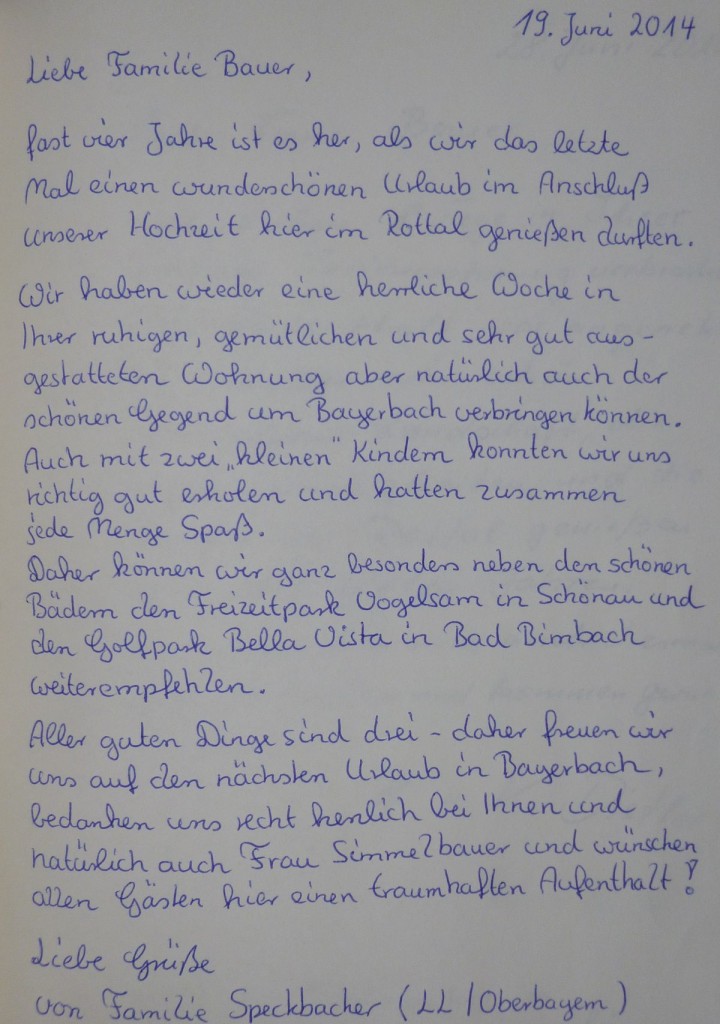 19. Juni 2014
Liebe Familie Bauer,
fast vier Jahre ist es her, als wir das letzte
Mal einen wunderschönen Urlaub im Anschluß
unserer Hochzeit hier im Rottal genießen durften.
Wir haben wieder eine herrliche Woche in
Ihrer ruhigen, gemütlichen und sehr gut aus-
gestatteten Wohnung aber natürlich auch der
schönen Gegend um Bayerbach verbringen können.
Auch mit zwei „kleinen" Kindern konnten wir uns
richtig gut erholen und hatten zusammen
jede Menge Spaß.
Daher können wir ganz besonders neben den schönen
Bädern den Freizeitpark Vogelsam in Schönau und
den Golfpark Bella Vista in Bad Birnbach
weiterempfehlen.
Aller guten Dinge sind drei - daher freuen wir
uns auf den nächsten Urlaub in Bayerbach,
bedanken uns recht herzlich bei Ihnen und
natürlich auch Frau Simmelbauer und wünschen
allen Gästen hier einen traumhaften Aufenthalt!
Liebe Grüße
von Familie Speckbacher (LL/Oberbayern)